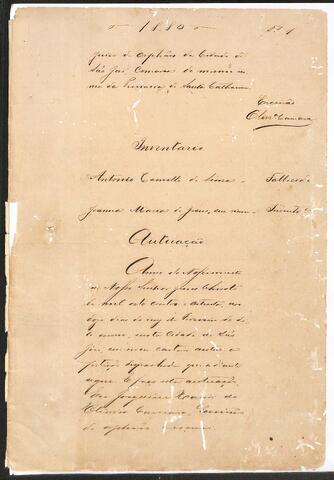 1880
Juizo de Orphãos da Cidade de
São José Comarca do mesmo no
me da Provincia de Santa Catharina
Escrivão
Camara
Inventario
Antonio Camillo de Lima Fallecido
Joanna Maria de Jesus, sua
Autuação
Anno do Nascimento
de Nosso Senhor Jesus Christo
de mil oito centos e oitenta, aos
dias do mez de Fevereiro do di-
to anno, nesta Cidade de São
José em meu cartorio autuo a
petição despachada que adiante
segue. E faço esta autuação.
Eu Joaquim Xavier de
Oliveira Camara, Escrivão
de orphãos o escrevi.